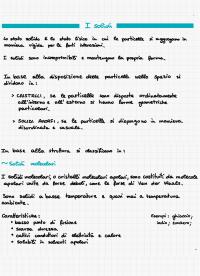 I solidi
Lo stato solido è lo stato fisico in cui le particelle si aggregano in
maniera rigida per le forti interazioni.
I solidi sono incomprimibili e mantengono la propria forma.
In base alla disposizione delle particelle nello spazio si
dividono in:
> CRISTALLI, se le particelle sono disposte ordinatamente
all'interno e all'esterno si hanno forme geometriche
particolari.
> SOLIDI AMORFI, se le particelle si dispongono in maniera
disordinata e casuale.
In base alla struttura si classificano in:
~ Solidi molecolari
I solidi molecolari, o cristalli molecolari apolari, sono costituiti da molecole
apolari unite da forze deboli, come le forze di Van der Waals.
Sono solidi a basse temperature e quasi mai a temperatura
ambiente.
Caratteristiche:
• basso punto di fusione
• scarsa durezza
• cattivi conduttori di elettricità e calore
• solubili in solventi apolari
Esempi: ghiaccio,
iodio, zucchero;